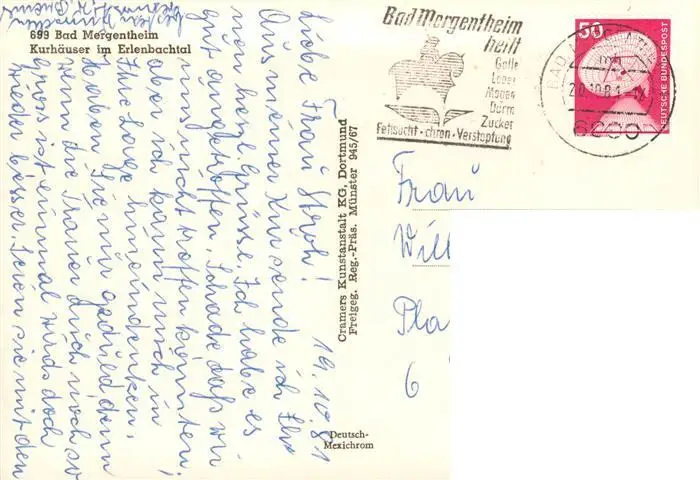 699 Bad Mergentheim
Kurhäuser im Erlenbachtal
19.10.81
Liebe Frau Stroh!
Aus meiner Kur sende ich Ihn
nen herzl. Grüsse. Ich habe es
gut angetroffen. Schade daß wir
uns nicht treffen konnten,
aber ich kann mich in
Ihre Lage hineindenken.
Haben Sie nur geduld denn
wenn die Trauer auch noch so
gross ist einmal wirds doch
wieder besser. Seien sie mit den
besten Wünschen
Cramers Kunstanstalt KG, Dortmund
Freigeg. Reg.-Präs. Münster 945/67
Deutsch-
Mexichrom
Bad Mergentheim
heilt
Galle
Leber
Magen
Darm
Zucker
Fettsucht - chron. Verstopfung
50
DEUTSCHE BUNDESPOST
Frau
Will
Pla
6